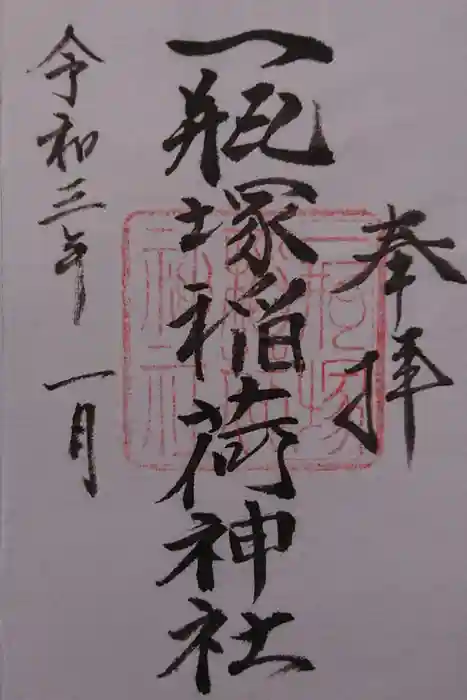 奉拝
一瓶塚稲荷神社
令和三年 一月